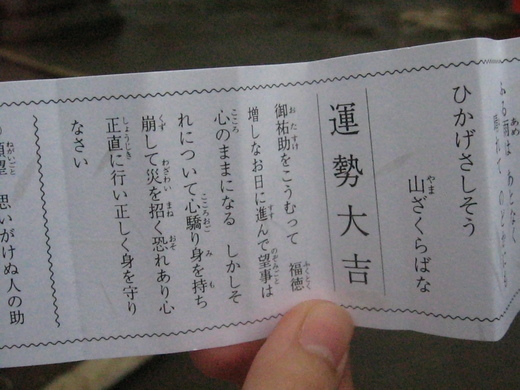 ふる雨は あとなく
晴れて のどかにも
ひかげさしそう
山ざくらばな
運勢大吉
御祐助をこうむって 福徳
増しなお日に進んで望事は
心のままになる しかしそ
れについて心驕り身を持ち
崩して災を招く恐れあり心
正直に行い正しく身を守り
なさい
願望 思いがけぬ人の助